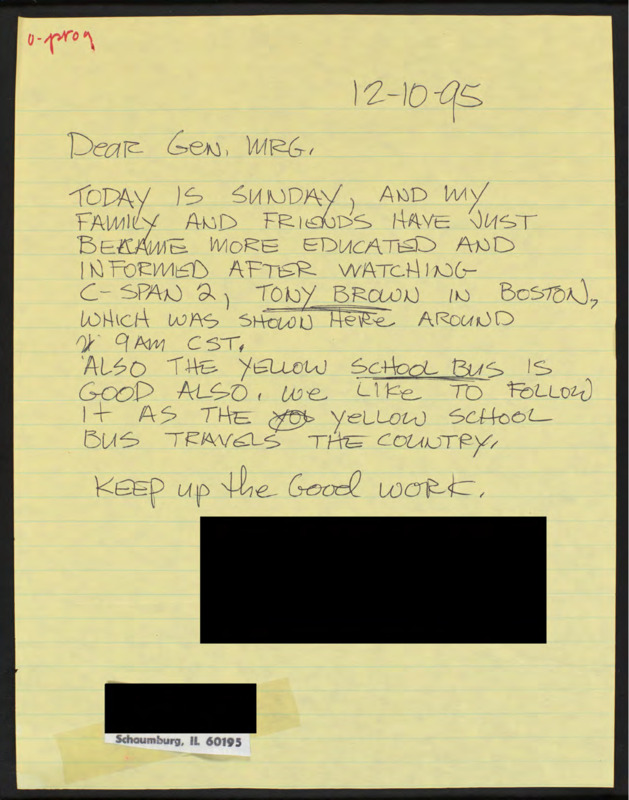 o-prog
12-10-95
Dear Gen. MRG.
TODAY IS SUNDAY, AND MY
FAMILY AND FRIENDS HAVE JUST
BECAME MORE EDUCATED AND
INFORMED AFTER WATCHING
C-SPAN 2, TONY BROWN IN BOSTON,
WHICH WAS SHOWN HERE AROUND
9AM CST.
ALSO THE YELLOW SCHOOL BUS IS
GOOD ALSO. WE LIKE TO FOLLOW
IT AS THE YELLOW SCHOOL
BUS TRAVELS THE COUNTRY.
KEEP up the Good WORK.
Schaumburg, IL 60195